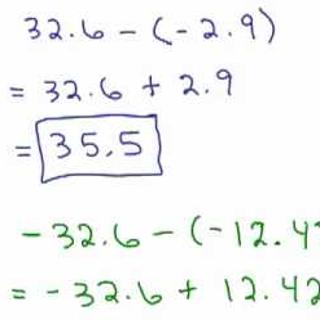 32.6 - (-2.9)
= 32.6 + 2.9
= 35.5
-32.6 - (-12.4
= -32.6 + 12.42